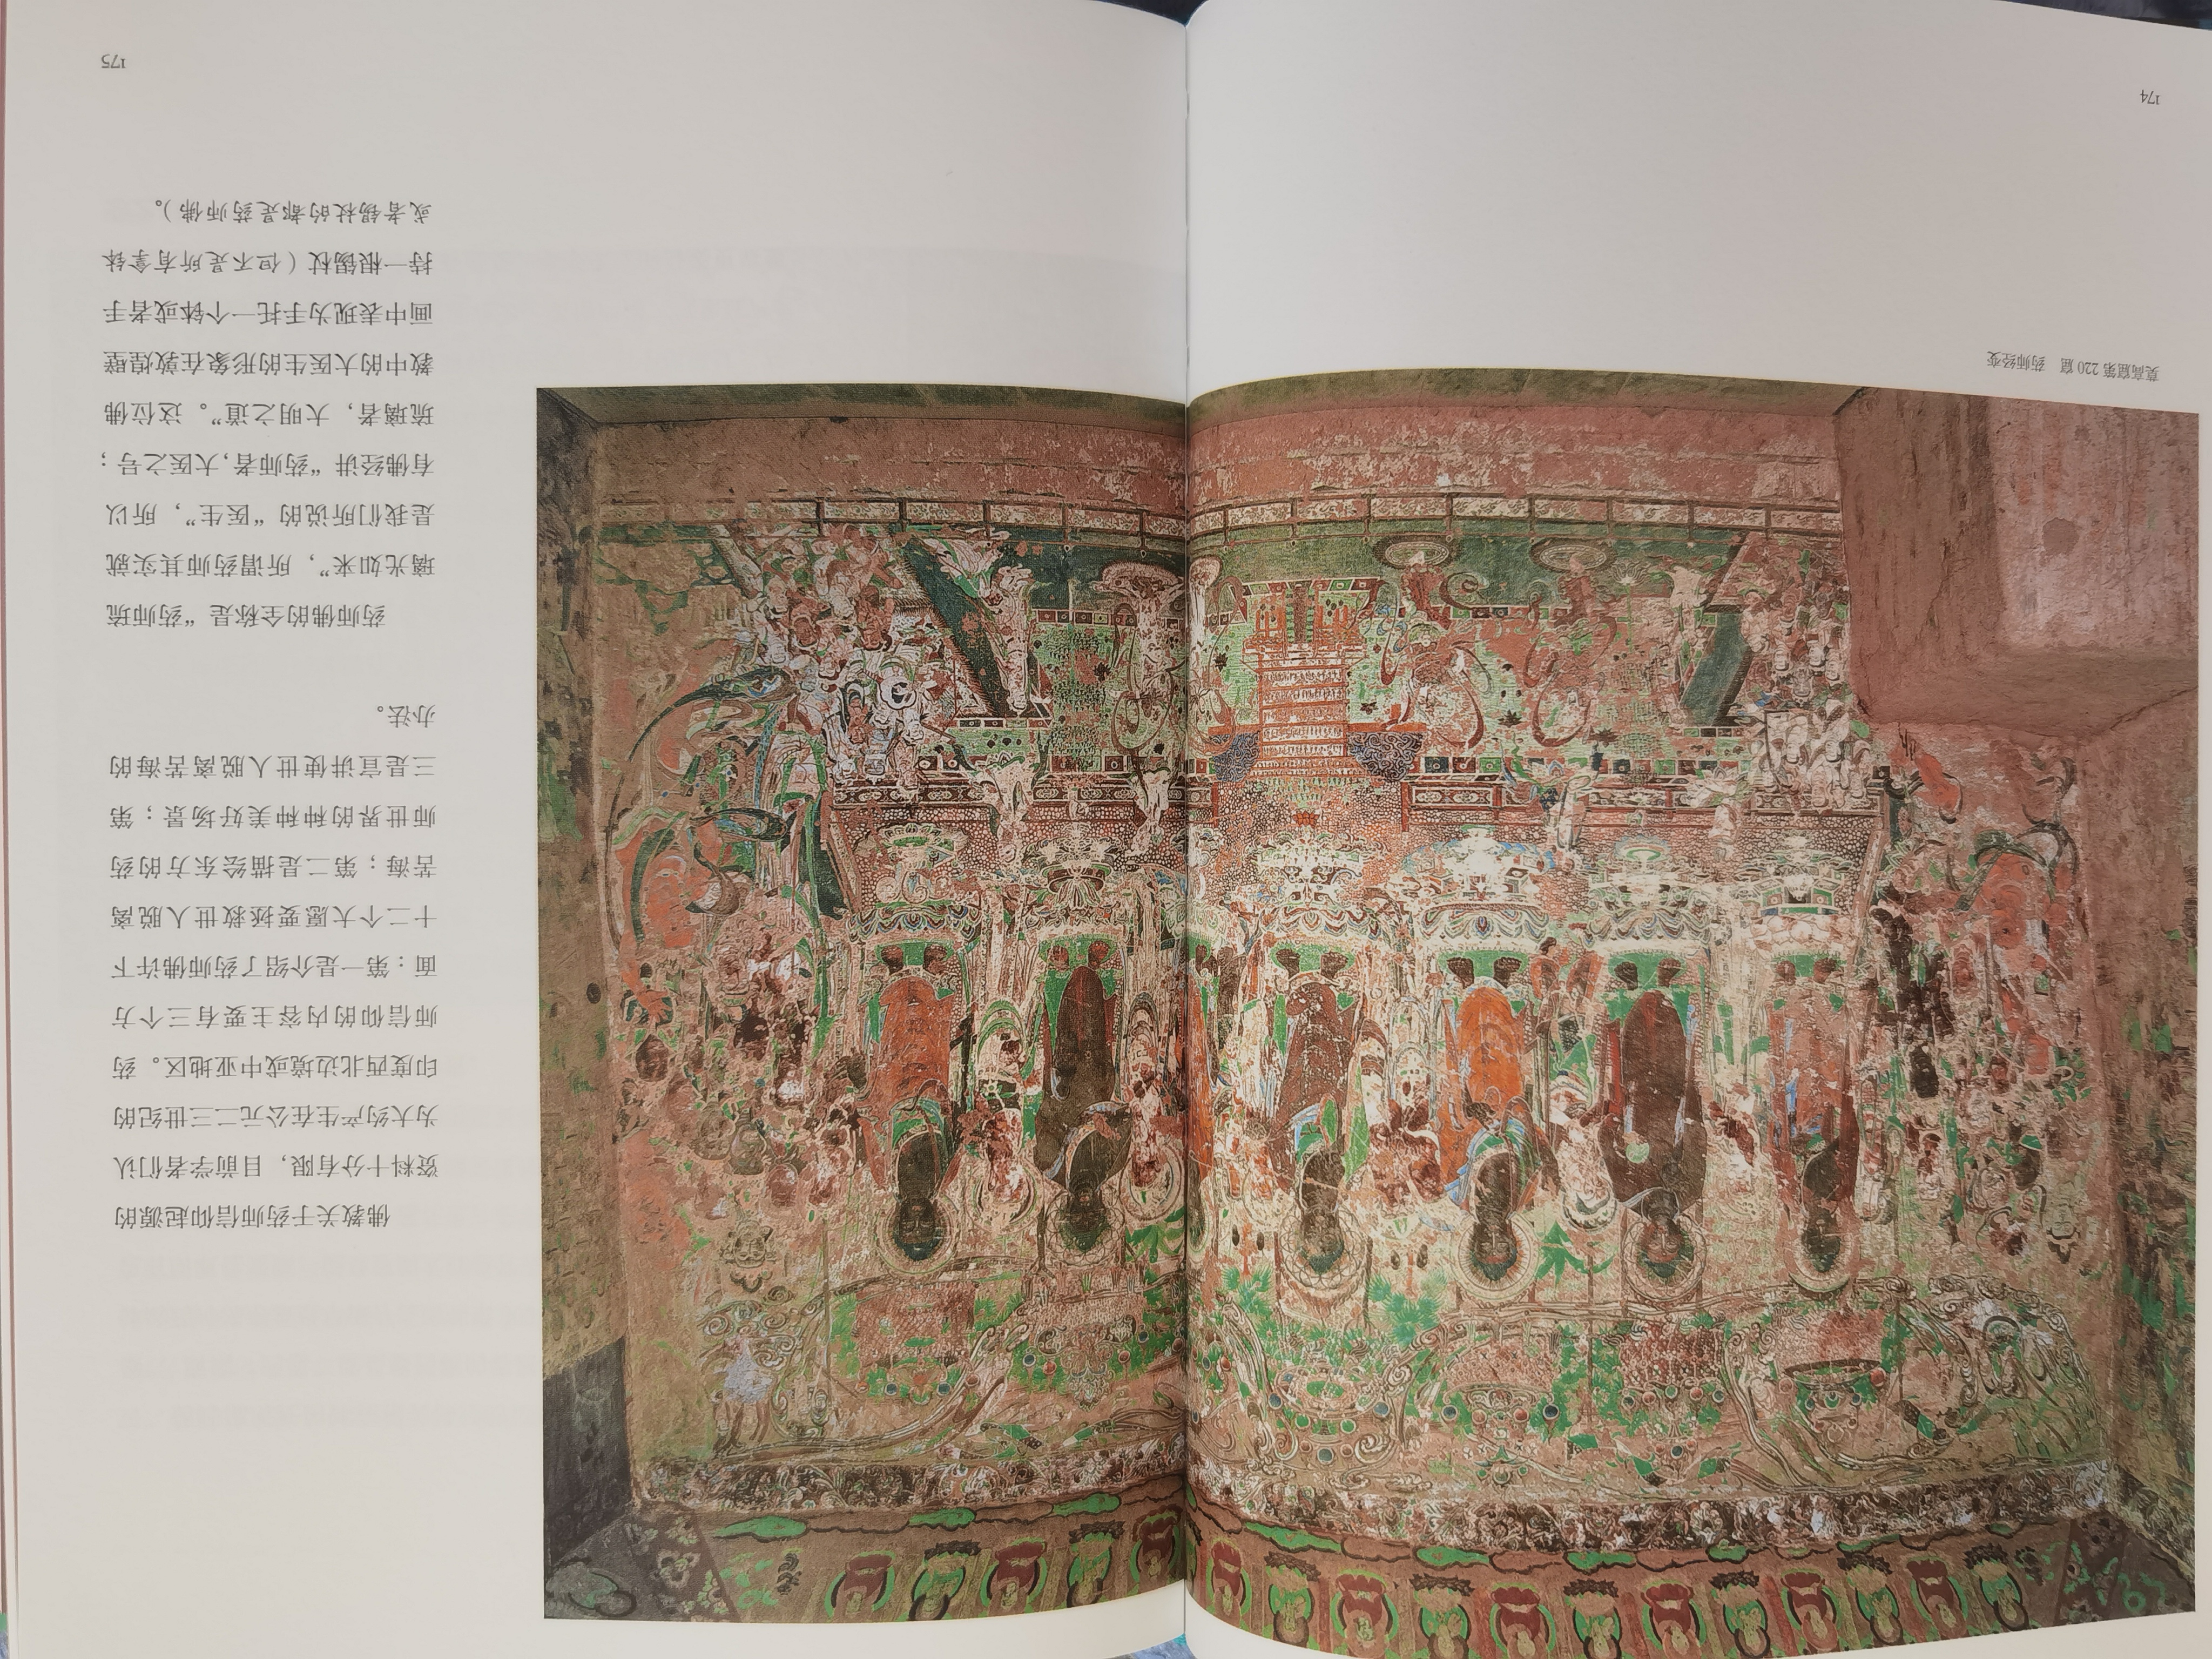 莫高窟第 220 窟　药师经变
174
佛教关于药师信仰起源的
资料十分有限，目前学者们认
为大约产生在公元二三世纪的
印度西北边境或中亚地区。药
师信仰的内容主要有三个方
面：第一是介绍了药师佛许下
十二个大愿要拯救世人脱离
苦海；第二是描绘东方的药
师世界的种种美好场景；第
三是宣讲使世人脱离苦海的
办法。
药师佛的全称是“药师琉
璃光如来”，所谓药师其实就
是我们所说的“医生”，所以
有佛经讲“药师者，大医之号；
琉璃者，大明之道”。这位佛
教中的大医生的形象在敦煌壁
画中表现为手托一个钵或者手
持一根锡杖（但不是所有拿钵
或者锡杖的都是药师佛）。
175